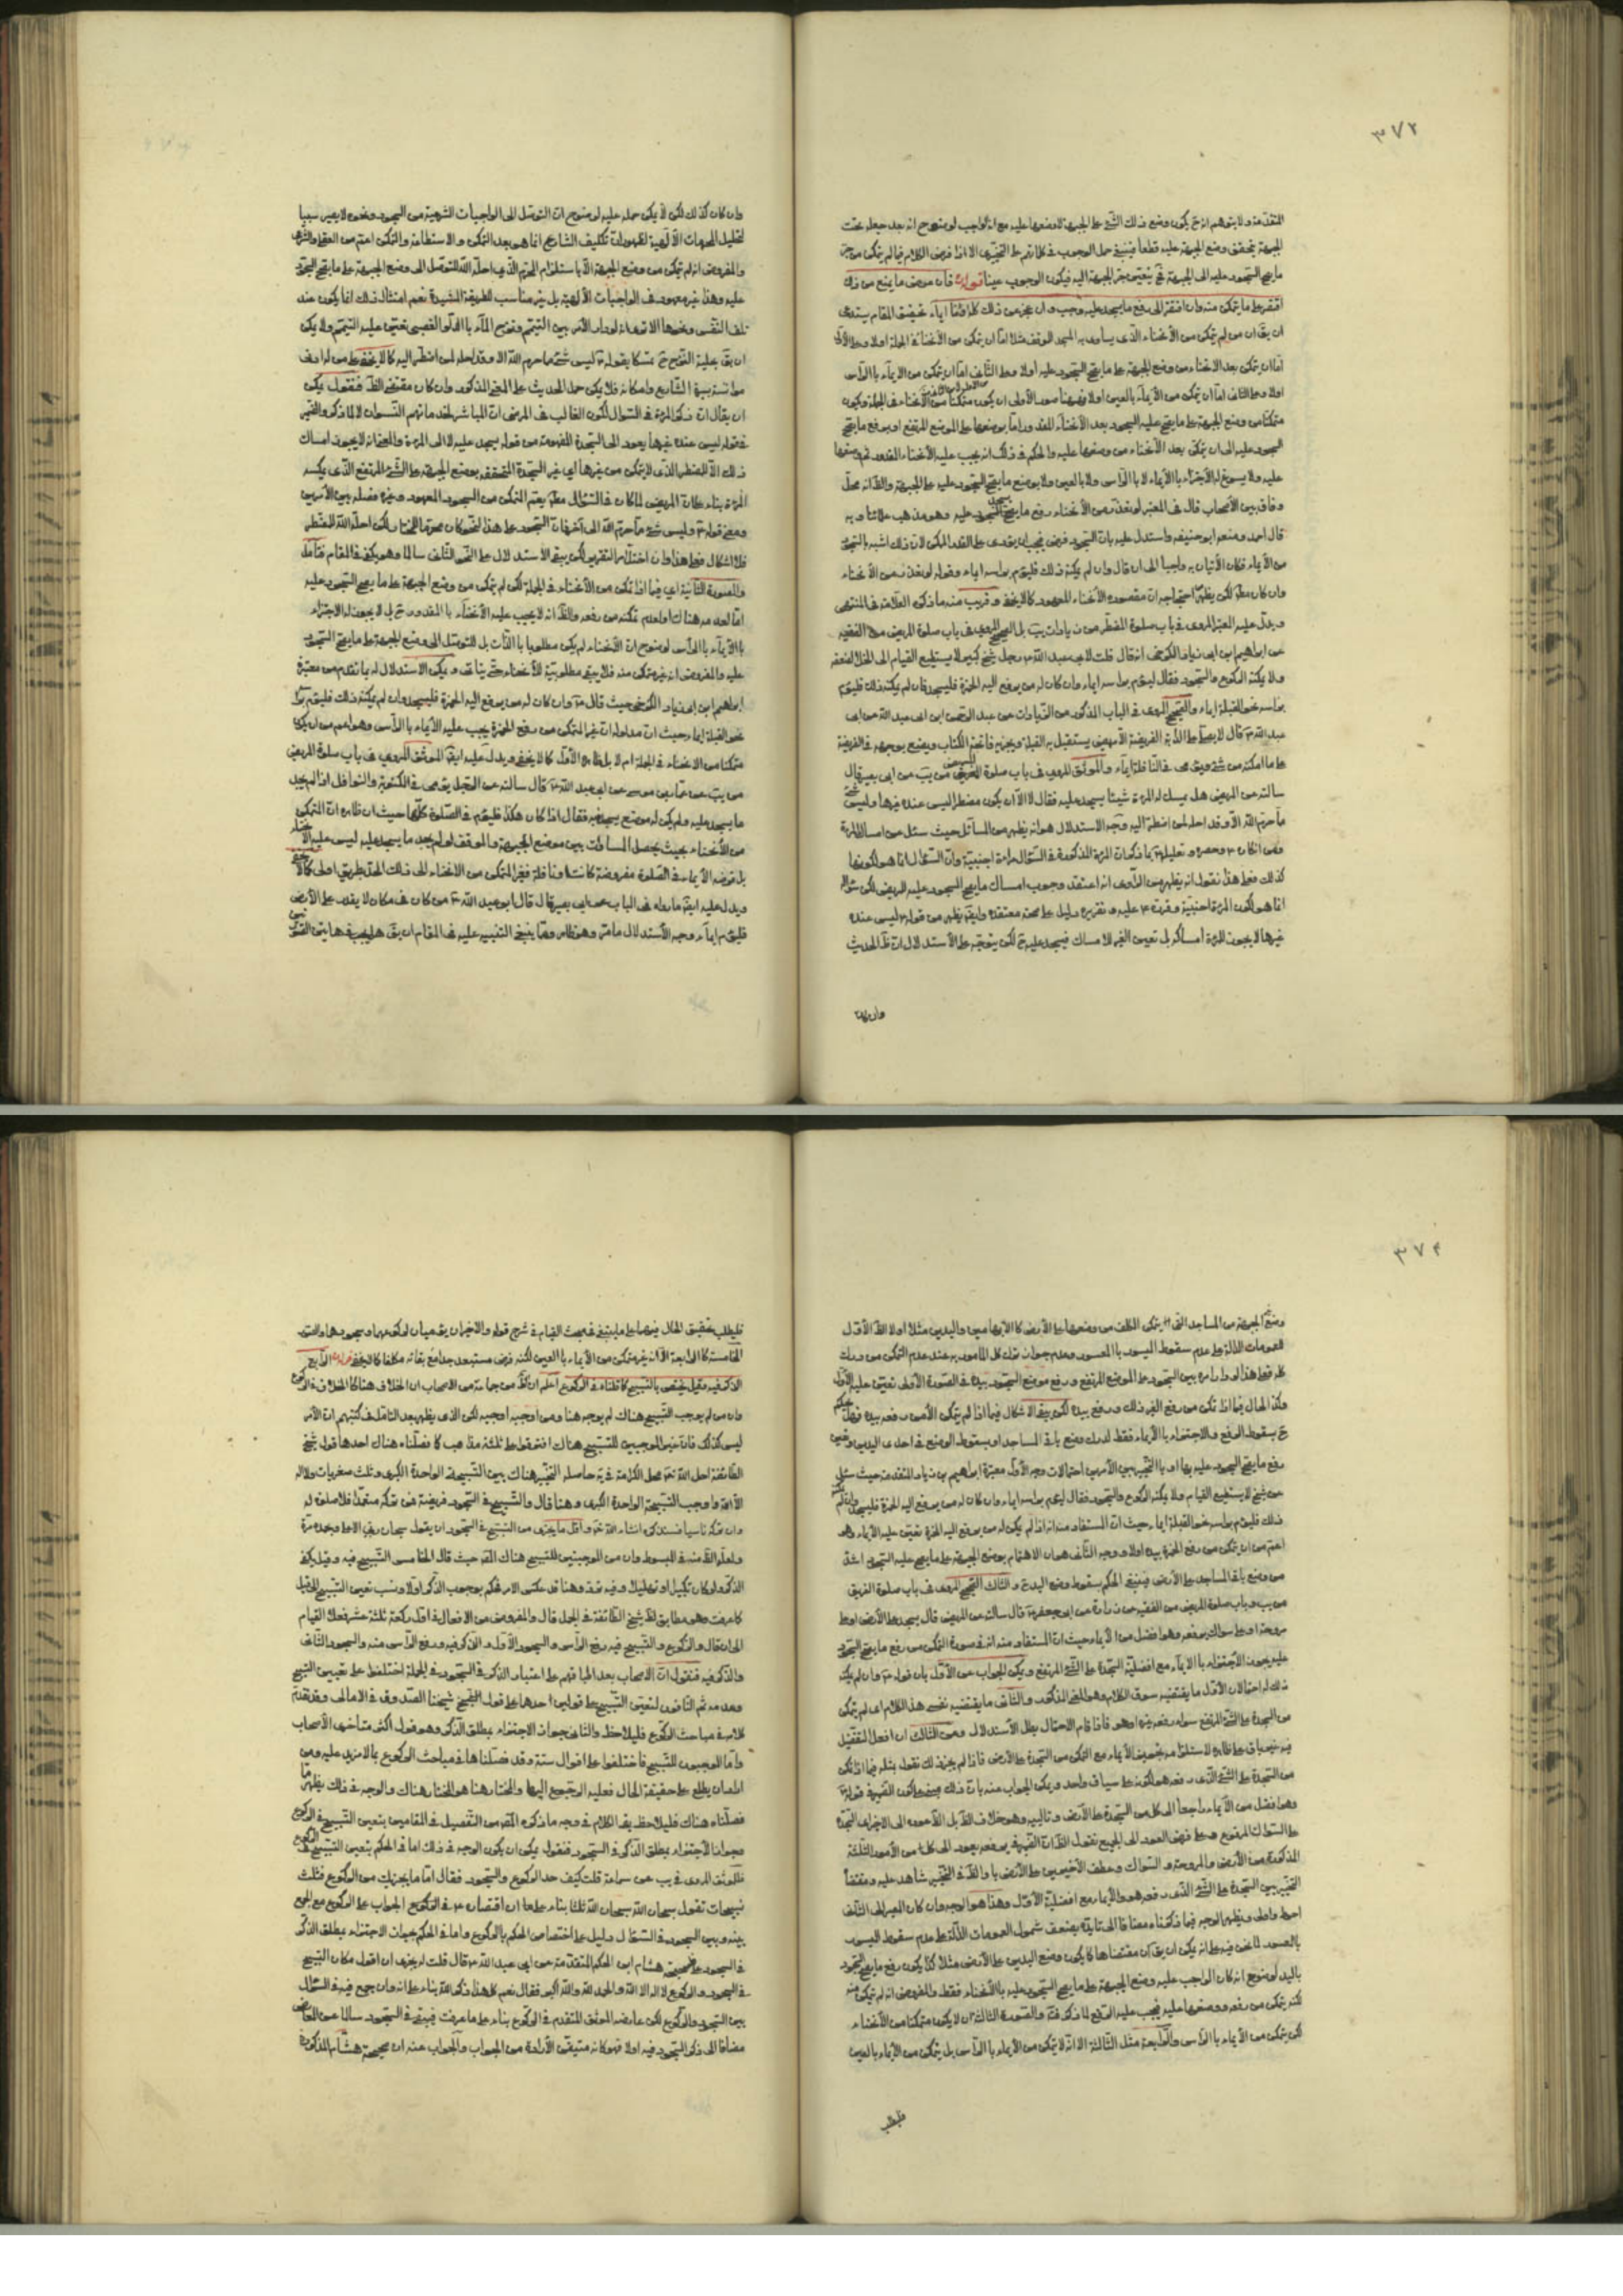 ٣٧٣
المتقدمة ولا يتوهم انه ح يكون وضع ذلك الشئ على الجبهة لا وضعها عليه مع انه الواجب لوضوح انه بعد جعله تحت
الجبهة يتحقق وضع الجبهة عليه قطعا فينبغى حمل الوجوب فى كلامهم على التخييرى الا اذا فرض الكلام فيما لم يتمكن من جر
ما يصح السجود عليه الى الجبهة فح يتعين جر الجبهة اليه فيكون الوجوب عينا قوله فان عرض ما يمنع من ذلك
اقتصر على ما يتمكن منه وان افتقر الى رفع ما يسجد عليه وجب وان عجز عن ذلك كله اومأ ايماء تحقيق المقام يستدعى
ان يق ان من لم يتمكن من الانحناء الذى يساوى به المسجد الموقف مثلا اما ان يتمكن من الانحناء فى الجملة اولا وعلى الأول
اما ان يتمكن بعد الانحناء من وضع الجبهة على ما يصح السجود عليه اولا وعلى الثانى اما ان يتمكن من الايماء بالرأس
اولا وعلى الثانى اما ان يتمكن من الايماء بالعين اولا وفيها صور الأولى ان يكون متمكنا من الانحناء فى الجملة ويكون
متمكنا من وضع الجبهة على ما يصح عليه السجود بعد الانحناء المقدور اما بوضعها على الموضع المرتفع او برفع ما يصح
السجود عليه الى ان يتمكن بعد الانحناء من وضعها عليه والحكم فى ذلك انه يجب عليه الانحناء المقدور ثم وضعها
عليه ولا يسوغ له الاجتزاء بالايماء لا بالرأس ولا بالعين ولا بوضع ما يصح السجود عليه على الجبهة والظ انه محل
وفاق بين الأصحاب قال فى المعتبر لو تعذر من الانحناء رفع ما يسجد عليه وهو مذهب علمائنا وبه
قال احمد ومنعه ابو حنيفه واستدل عليه بان السجود فرض فيجب ان يؤدى على القدر الممكن لان ذلك اشبه بالسجود
من الايماء فكان الأتيان به واجبا الى ان قال وان لم يمكنه ذلك فليؤم برأسه ايماء وقوله لو تعذر من الانحناء
وان كان مط لكن يظهر من احتجاجه ان مقصوده الانحناء المعهود كما لا يخفى وقريب منه ما ذكره العلامة فى المنتهى
ويدل عليه الخبر المروى فى باب صلوة المضطر من زيادات يب بل الصحيح المروى فى باب صلوة المريض من الفقيه
عن ابراهيم ابن ابى زياد الكرخى انه قال قلت لابى عبد الله ع رجل شيخ كبير لا يستطيع القيام الى الخلا لضعفه
ولا يمكنه الركوع والسجود فقال ليؤم برأسه ايماء وان كان له من يرفع اليه الخمرة فليسجد فان لم يمكنه ذلك فليؤم
برأسه نحو القبلة ايماء والصحيح المروى فى الباب المذكور من الزيادات عن عبد الرحمن ابن ابى عبد الله عن ابى
عبد الله ع قال لا يصلى على الدابة الفريضة الا مريض يستقبل به القبلة ويجزيه فاتحة الكتاب ويضع بوجهه فى الفريضة
على ما امكنه من شئ ويومى فى النافلة ايماء والموثق المروى فى باب صلوة المريض من يب عن ابى بصير قال
سالته عن المريض هل يمسك له المرءة شيئا يسجد عليه فقال لا الا ان يكون مضطرا ليس عنده غيرها وليس شئ
ما حرم الله الا وقد احله لمن اضطر اليه وجه الاستدلال هو انه يظهر من السائل حيث سئل عن امساك المرءة
كذلك فعلى هذا نقول انه يظهر من الراوى انه اعتقد وجوب امساك ما يصح السجود عليه للمريض لكن سؤاله
انما هو لكون المرءة اجنبية وقرره ع عليه وتقريره دليل على صحة معتقده وايض يظهر من قوله ع ليس عنده
غيرها لا يجوز للمرءة امساكه بل تعين الغير للامساك فيسجد عليه ح لكن يتوجه على الاستدلال ان ظ الحديث
وان كان
وان كان كذلك لكن لا يمكن حمله عليه لوضوح ان التوصل الى الواجبات الشرعية من السجود ونحوه لا يصير سببا
لتحليل المحرمات الالهية لظهور ان تكليف الشارع انما هو بعد التمكن والاستطاعة والتمكن اعم من العقلى والشرعى
والمفروض انه لم يتمكن من وضع الجبهة الا باستلزام المحرم الذى احله الله للتوصل الى وضع الجبهة على ما يصح السجود
عليه وهذا غير معهود فى الواجبات الالهية بل غير مناسب للطريقة المشيدة نعم امثال ذلك انما يكون عند
تلف النفس ونحوها الا ترى انه لو دار الأمر بين التيمم وتوضح الماء بالدلو الغصبى تعين عليه التيمم ولا يمكن
ان يق بحلية التوضح ح تمسكا بقوله ع ليس شئ مما حرم الله الا وقد احله لمن اضطر اليه كما لا يخفى على من له ادنى
مؤانسة بسيرة الشارع واحكامه فلا يمكن حمل الحديث على المعنى المذكور وان كان مقتضى الظ فنقول يمكن
ان يقال ان ذكر المرءة فى السؤال لكون الغالب فى المرضى ان المباشر لخدماتهم النسوان لا لما ذكر والضمير
فى قوله ليس عنده غيرها يعود الى السجدة المفهومة من قوله يسجد عليه لا الى المرءة والمعنى انه لا يجوز امساك
ذلك الا للمضطر الذى لا يتمكن من غيرها اى غير السجدة المتحققة بوضع الجبهة على الشئ المرتفع الذى يمسكه
المرءة بناء على ان المريض لما كان فى السؤال مط يعم التمكن من السجود المعهود وغيره فصله بين الأمرين
ومعنى قوله ع وليس شئ مما حرم الله الى آخره ان السجود على هذا النحو كان محرما للمختار لكن احله الله للمضطر
فلا اشكال فعلى هذا وان اختل امر التقرير لكن يبقى الاستدلال على النحو الثالث سالما وهو يكفى فى المقام فتامل
والصورة الثانية اى فيما اذا تمكن من الانحناء فى الجملة لكن لم يتمكن من وضع الجبهة على ما يصح السجود عليه
اما لعدمه هناك او لعدم تمكنه من رفعه والظ انه لا يجب عليه الانحناء بالمقدور ح بل لا يجوز له الاجتزاء
بالايماء بالرأس لوضوح ان الانحناء لم يكن مطلوبا بالذات بل للتوصل الى وضع الجبهة على ما يصح السجود
عليه والمفروض انه غير متمكن منه فلا يبقى مطلوبية للانحناء حتى ينافى ويمكن الاستدلال له بما تقدم من معتبرة
ابراهيم ابن ابى زياد الكرخى حيث قال ع وان كان له من يرفع اليه الخمرة فليسجد وان لم يمكنه ذلك فليؤم برأسه
نحو القبلة ايماء حيث ان مدلوله ان غير المتمكن من رفع الخمرة يجب عليه الايماء بالرأس وهو اعم من ان يكون
متمكنا من الانحناء فى الجملة ام لا بل ظاهره الأول كما لا يخفى ويدل عليه ايض الموثق المروى فى باب صلوة المريض
من يب عن عمار بن موسى عن ابى عبد الله ع قال سالته عن الرجل يومى فى المكتوبة والنوافل اذا لم يجد
ما يسجد عليه ولم يكن له موضع يسجد فيه فقال اذا كان هكذا فليؤم فى الصلوة كلها حيث ان ظاهره ان المتمكن
من الانحناء بحيث يحصل المساواة بين موضع الجبهة والموقف لو لم يجد ما يسجد عليه ليس عليه الانحناء
بل فرضه الايماء فى الصلوة مفروضة كانت او نافلة فغير المتمكن من الانحناء الى ذلك الحد بطريق اولى كما لا يخفى
ويدل عليه ايض ما رواه فى الباب عن ابى بصير قال قال ابو عبد الله ع من كان فى مكان لا يقدر على الأرض
فليؤم ايماء وجه الاستدلال ما مر وهو ظاهر ومما ينبغى التنبيه عليه فى المقام ان يق هل يجب فى هاتين الصورتين
٣٧٤
وضع غير الجبهة من المساجد التى يتمكن المكلف من وضعها على الأرض كالابهامين واليدين مثلا اولا الظ الأول
لعمومات الدالة على عدم سقوط الميسور بالمعسور وعدم جواز ترك كل المأمور به عند عدم التمكن من درك
كله فعلى هذا لو دار امره بين السجود على الموضع المرتفع ورفع موضع السجود بيده فى الصورة الأولى تعين عليه الأول
وكذا الحال فيما اذا تمكن من رفع الغير ذلك ورفع بيده لكن يبقى الاشكال فيما اذا لم يتمكن الا من رفعه بيده فهل يحكم
ح بسقوط الرفع والاجتزاء بالايماء فقط لدرك وضع باقى المساجد او بسقوط الوضع فى احدى اليدين وتعين
رفع ما يصح السجود عليه بها او بالتخيير بين الأمرين احتمالات وجه الأول معتبرة ابراهيم بن زياد المتقدمة حيث سئل
عن شيخ لا يستطيع القيام ولا يمكنه الركوع والسجود فقال ليؤم برأسه ايماء وان كان له من يرفع اليه الخمرة فليسجد وان لم يمكنه
ذلك فليؤم برأسه نحو القبلة ايماء حيث ان المستفاد منه انه اذا لم يكن له من يرفع اليه الخمرة تعين عليه الايماء وهو
اعم من ان يتمكن من رفع الخمرة بيده اولا ووجه الثانى هو ان الاهتمام بوضع الجبهة على ما يصح عليه السجود اشد
من وضع باقى المساجد على الأرض فينبغى الحكم بسقوط وضع اليد ح والثالث الصحيح المروى فى باب صلوة الغريق
من يب وباب صلوة المريض من الفقيه عن زرارة عن ابى جعفر ع قال سالته عن المريض قال يسجد على الأرض او على
مروحة او على سواك يرفعه وهو افضل من الايماء حيث ان المستفاد منه انه فى صورة التمكن من رفع ما يصح السجود
عليه يجوز الاجتزاء بالايماء مع افضلية السجدة على الشئ المرتفع ويمكن الجواب عن الأول بان قوله ع وان لم يمكنه
ذلك له احتمالان الأول ما يقتضيه سوق الكلام وهو المعنى المذكور والثانى ما يقتضيه نفس هذا الكلام اى لم يتمكن
من السجدة على الشئ المرتفع سواء رفعه غيره او هو فاذا قام الاحتمال بطل الاستدلال وعن الثالث ان افعل التفضيل
فيه غير باق على ظاهره لاستلزامه تجويز الايماء مع التمكن من السجدة على الأرض فاذا لم يجز ذلك نقول بمثله فيما اذا تمكن
من السجدة على الشئ الذى رفعه هو لكونه على سياق واحد ويمكن الجواب منه بان ذلك يقتضى كون الضمير فى قوله ع
وهو افضل من الايماء راجعا الى كل من السجدة على الأرض وتالييه وهو خلاف الظ بل الظ عوده الى الاخير اى السجدة
على السواك المرفوع وعلى فرض العود الى الجميع نقول الظ ان الضمير فى يرفعه يعود الى كل من الأمور الثلثة
المذكورة من الأرض والمروحة والسواك وعطف الأخيرين على الأرض باو الظ فى التخيير شاهد عليه ومقتضاه
التخيير بين السجدة على الشئ الذى رفعه هو والايماء مع افضلية الأول وهذا هو الوجه وان كان المصير الى الثالث
احوط واولى ويظهر الوجه فيما ذكرناه مضافا الى تاييده بضعف شمول العمومات الدالة على عدم سقوط الميسور
بالمعسور لما نحن فيه على انه يمكن ان يق ان مقتضاها كما يكون وضع اليدين على الأرض مثلا كذا يكون رفع ما يصح السجود
باليد لوضوح انه كان الواجب عليه وضع الجبهة على ما يصح السجود عليه بالانحناء فقط والمفروض انه لم يتمكن منه
لكنه يتمكن من رفعه ووضعها عليه فيجب عليه الرفع لما ذكر فتم والصورة الثالثة ان لا يكون متمكنا من الانحناء
لكن يتمكن من الايماء بالرأس والرابعة مثل الثالثة الا انه لا يتمكن من الايماء بالرأس بل يتمكن من الايماء بالعين
فليطلب
فليطلب تحقيق الحال فيهما على ما ينبغى فى مبحث القيام فى شرح قوله والاخيران يوميان لركوعهما وسجودهما والصورة
الخامسة كالرابعة الا انه غير متمكن من الايماء بالعين لكنه فرض مستبعد جدا مع بقائه مكلفا كما لا يخفى قوله الرابع
الذكر فيه وقيل يختص بالتسبيح كما قلناه فى الركوع اعلم ان ظ من جماعة من الاصحاب ان الخلاف هنا كالخلاف فى الركوع
وان من لم يوجب التسبيح هناك لم يوجبه هنا ومن اوجبه اوجبه لكن الذى يظهر بعد التامل فى كتبهم ان الأمر
ليس كذلك فان غير الموجبين للتسبيح هناك افترقوا على ثلثة مذاهب كما فصلناه هناك احدها قول شيخ
الطائفة احل الله تعالى محل الكرامة فى يه حاصله التخيير هناك بين التسبيحة الواحدة الكبرى وثلث صغريات ولا اله
الا الله واوجب التسبيحة الواحدة الكبرى وهنا قال والتسبيح فى السجود فريضة فمن تركه متعمدا فلا صلوة له
وان تركه ناسيا فسنذكره انشاء الله تعالى واقل ما يجزى من التسبيح فى السجود ان يقول سبحان ربى الاعلى وبحمده مرة
ولعله الظ منه فى المبسوط وان من الموجبين للتسبيح هناك المقر حيث قال الخامس التسبيح فيه وقيل يكفى
الذكر ولو كان تكبيرا او تهليلا وفيه تردد وهنا قد عكس الامر فحكم بوجوب الذكر اولا ونسب تعين التسبيح الى القيل
كما عرفت وهو مطابق لظ شيخ الطائفة فى الجمل قال والمفروض من الافعال فى اول ركعة ثلثة عشر فعلا القيام
الى ان قال والركوع والتسبيح فيه ورفع الرأس والسجود الأول والذكر فيه ورفع الرأس منه والسجود الثانى
والذكر فيه فنقول ان الاصحاب بعد اطباقهم على اعتبار الذكر فى السجود فى الجملة اختلفوا على تعيين التسبيح
وعدمه ثم النافون لتعين التسبيح على قولين احدهما على قول الشيخ شيخنا الصدوق فى الامالى وقد تقدم
كلامه فى مباحث الركوع فليلاحظ والثانى جواز الاجتزاء بمطلق الذكر وهو قول اكثر متاخرى الأصحاب
واما الموجبون للتسبيح فاختلفوا على اقوال ستة وقد فصلناها فى مباحث الركوع بما لا مزيد عليه ومن
اراد ان يطلع على حقيقة الحال فعليه الرجوع اليها والمختار هنا هو المختار هناك والوجه فى ذلك يظهر مما
فصلناه هناك فليلاحظ بقى الكلام فى وجه ما ذكره المقر من التفصيل فى المقامين بتعين التسبيح فى الركوع
وجواز الاجتزاء بمطلق الذكر فى السجود فنقول يمكن ان يكون الوجه فى ذلك اما فى الحكم بتعين التسبيح فى الركوع
فللموثق المروى فى يب عن سماعة قلت كيف حد الركوع والسجود فقال اما ما يجزيك من الركوع فثلث
تسبيحات تقول سبحان الله سبحان الله ثلثا بناء على ما ان اقتصاره ع فى الجواب على الركوع مع الجمع
بينه وبين السجود فى السؤال دليل على اختصاص الحكم بالركوع واما فى الحكم بجواز الاجتزاء بمطلق الذكر
فى السجود فلصحيحة هشام ابن الحكم المتقدمة عن ابى عبد الله ع قال قلت له يجزى ان اقول مكان التسبيح
فى السجود والركوع لا اله الا الله والحمد لله والله اكبر فقال نعم كل هذا ذكر الله بناء على انه وان جمع فيه فى السؤال
بين السجود والركوع لكن عارضه الموثق المتقدم فى الركوع بناء على ما عرفت فيبقى فى السجود سالما عن المعارض
مضافا الى ذكر السجود فيه اولا فهو كانه متيقن الارادة من الجواب والجواب عنه ان صحيحة هشام المذكورة